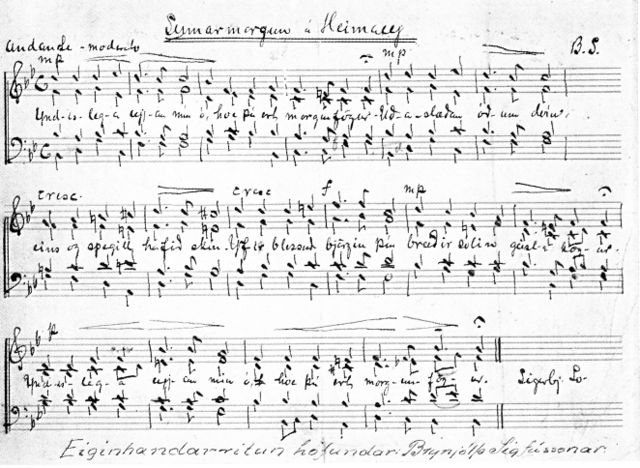 Sumarmorgun á Heimaey
Andante-moderato
B.S.
mp mp
Ynd-is-leg-a eyj-an mín ó, hve þú ert morgunfögur. Úð-a-slæðan örðum dvín,
cresc. cresc f mp
eins og spegill hafið skín. Yfir blessuð björgin þín breiðir sólin geisla
p
Ynd-is-leg-a eyj-an mín ó, hve þú ert morg-un-fög-ur. Sigurbj. Sv-
Eiginhandarritun höfundar: Brynjólfs Sigfússonar.